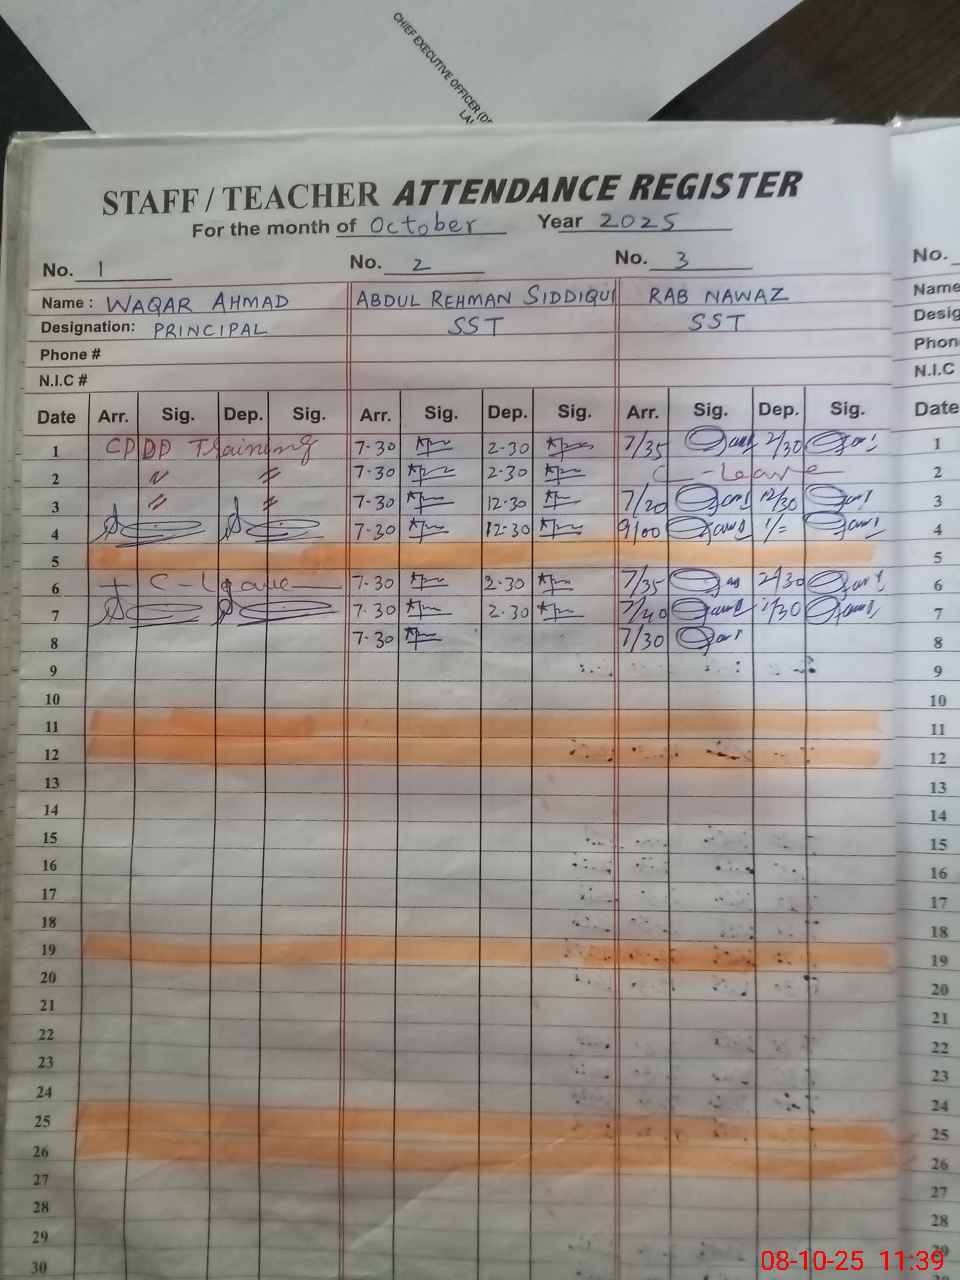 CHIEF EXECUTIVE OFFICER (D
LA
STAFF / TEACHER ATTENDANCE REGISTER
For the month of October Year 2025
No. 1 No. 2 No. 3 No.
Name : WAQAR AHMAD ABDUL REHMAN SIDDIQUI RAB NAWAZ Name
Designation: PRINCIPAL SST SST Desig
Phone # Phon
N.I.C # N.I.C
Date Arr. Sig. Dep. Sig. Arr. Sig. Dep. Sig. Arr. Sig. Dep. Sig. Date
1 CPDD Training 7-30 2-30 7/35 2/30 1
2 〃 〃 7-30 2-30 C - Leave 2
3 〃 〃 7-30 12-30 7/20 12/30 3
4 7-30 12-30 9/00 1/= 4
5 5
6 C - Leave 7-30 2-30 7/35 2/30 6
7 7-30 2-30 7/40 7
8 7-30 7/30 8
9 9
10 10
11 11
12 12
13 13
14 14
15 15
16 16
17 17
18 18
19 19
20 20
21 21
22 22
23 23
24 24
25 25
26 26
27 27
28 28
29 29
30 30
08-10-25 11:39